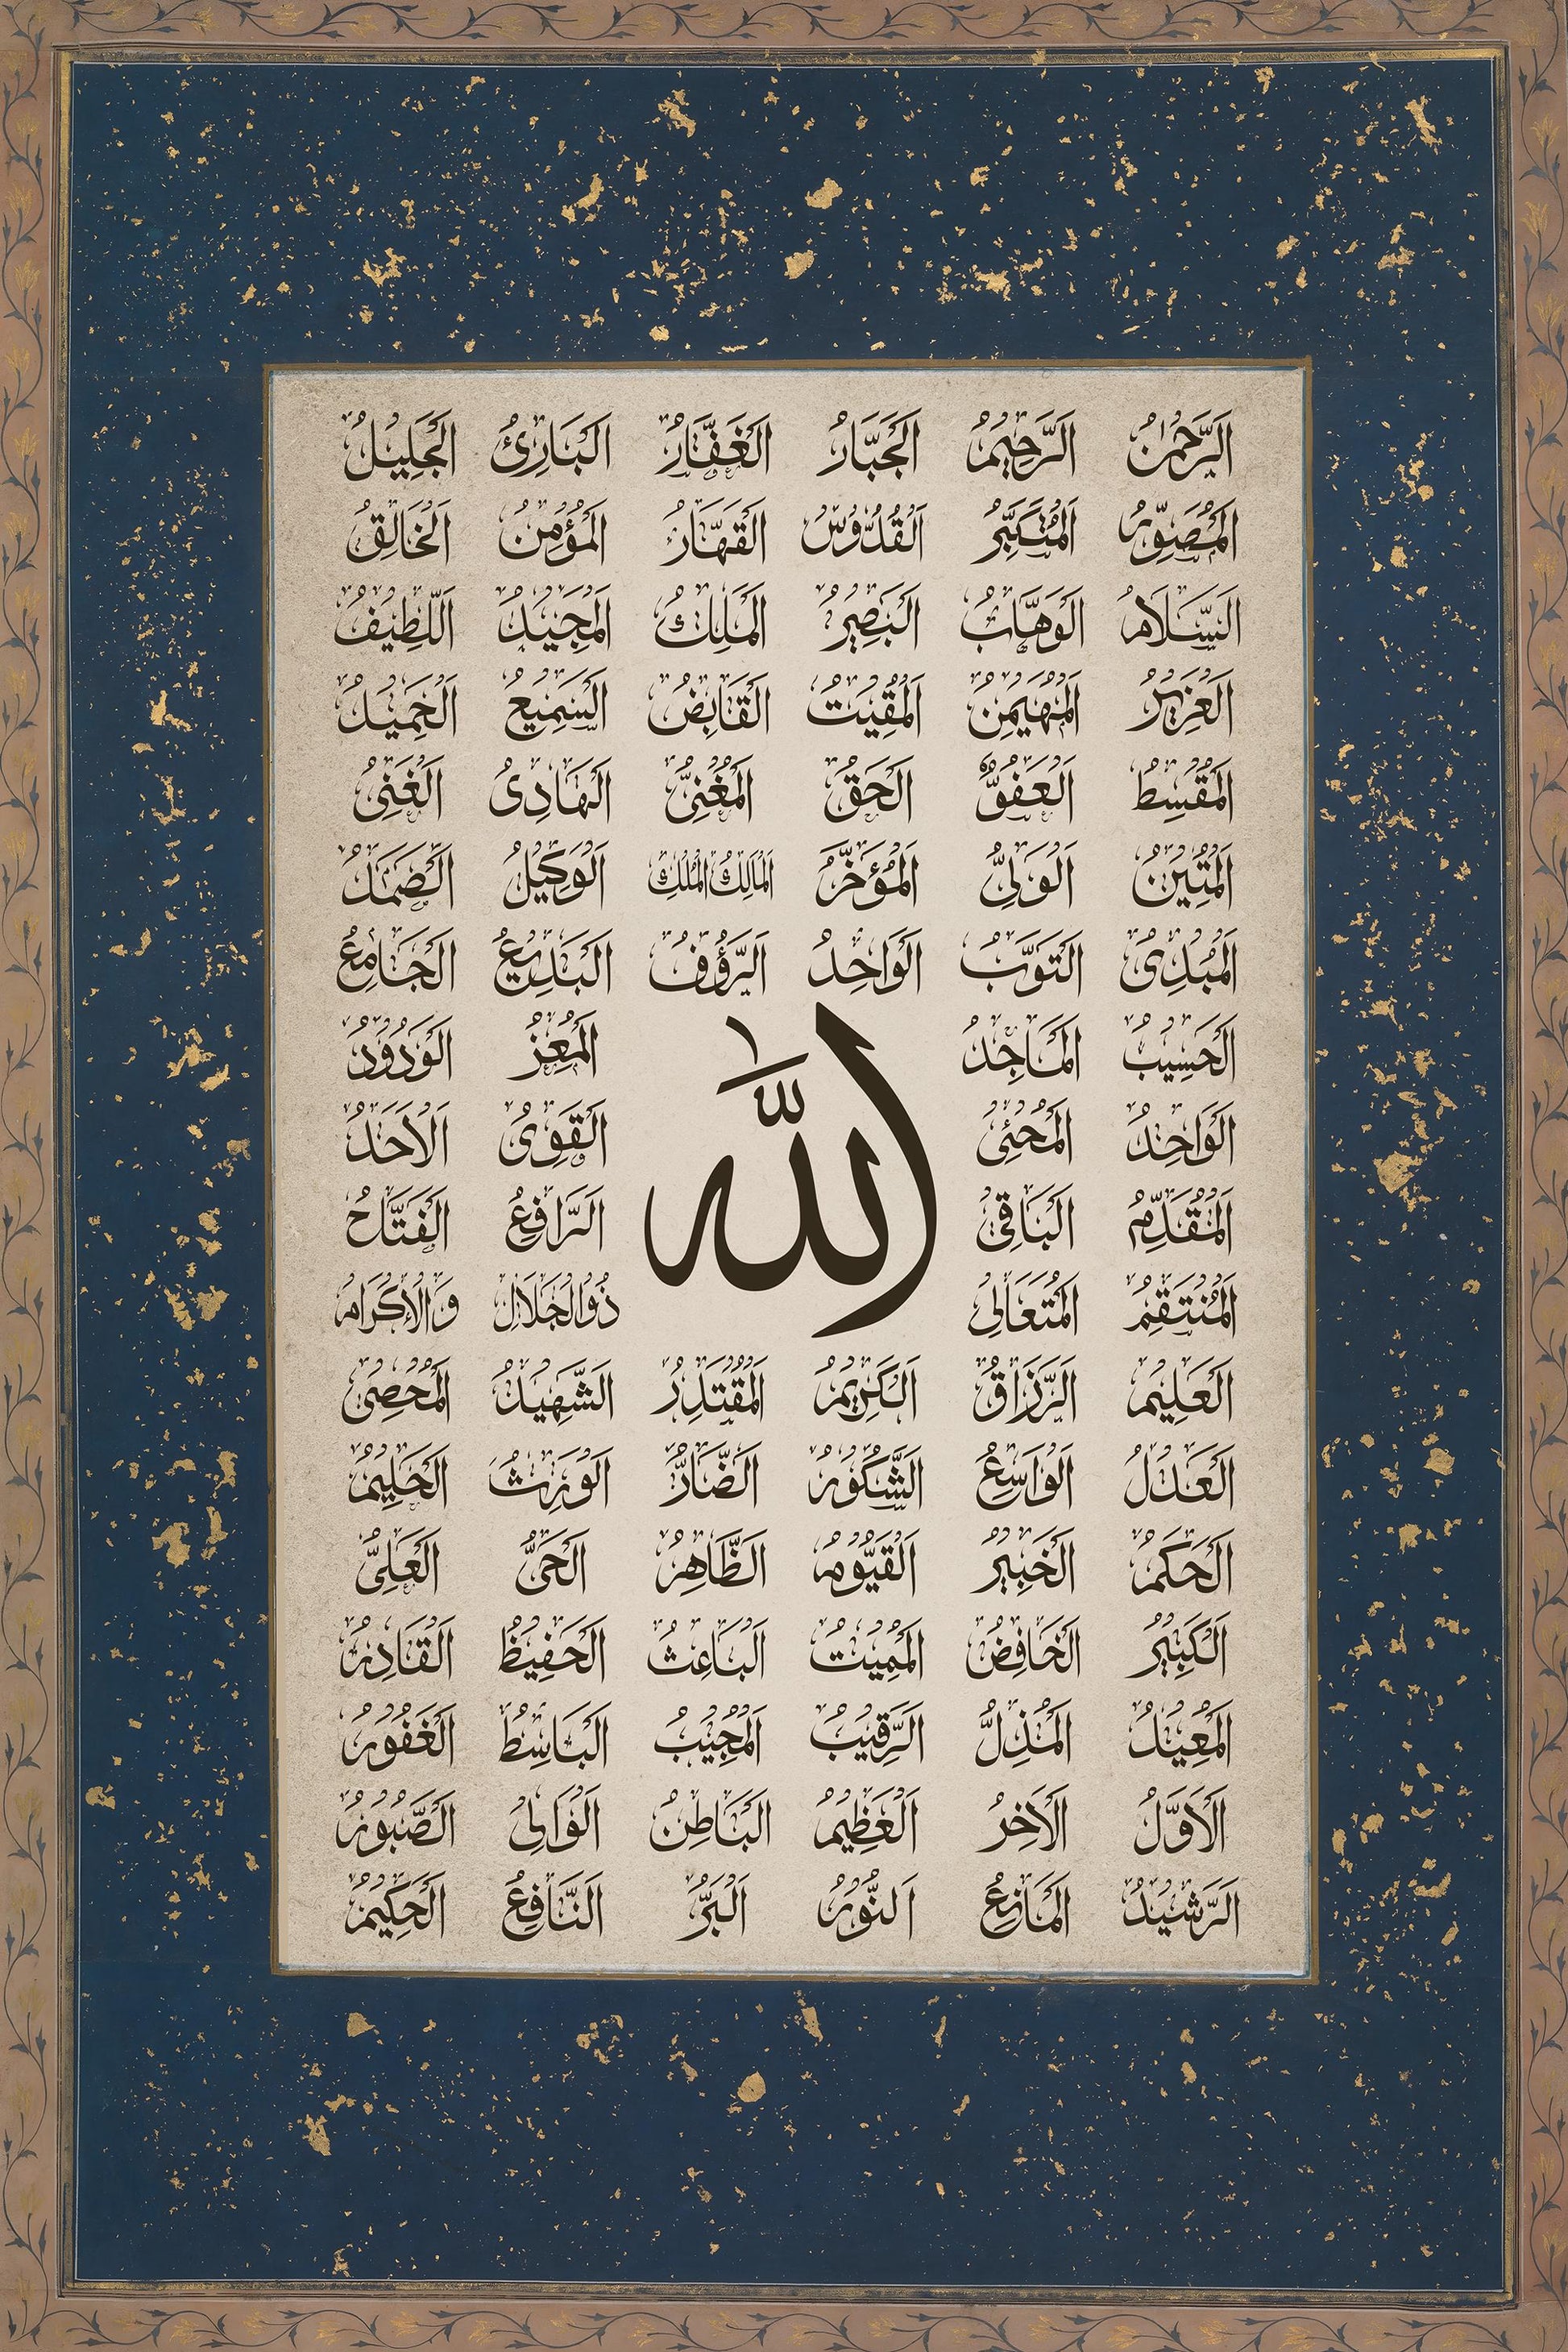 الرَّحْمٰنُ الرَّحِيمُ الْجَبَّارُ الْغَفَّارُ الْبَارِئُ الْجَلِيلُ
الْمُصَوِّرُ الْمُتَكَبِّرُ الْقُدُّوسُ الْقَهَّارُ الْمُؤْمِنُ الْخَالِقُ
السَّلَامُ الْوَهَّابُ الْبَصِيرُ الْمَلِكُ الْمَجِيدُ اللَّطِيفُ
الْعَزِيزُ الْمُهَيْمِنُ الْمُقِيتُ الْقَابِضُ السَّمِيعُ
الْمُقْسِطُ الْعَفُوُّ الْحَقُّ الْمُغْنِيُّ الْهَادِيُ الْغَنِيُ
الْمَتِينُ الْوَلِيُّ الْمُؤَخِّرُ الْمَالِكُ الْمُلْكِ الْوَكِيلُ الصَّمَدُ
الْمُبْدِئُ التَّوَّبُ الْوَاحِدُ الرَّؤُوفُ الْبَدِيعُ الْجَامِعُ
الْحَسِيبُ الْمَاجِدُ الْمُعِزُّ الْوَدُودُ
الْوَاحِدُ الْمُحْيِي الْقَوِيُّ الْأَحَدُ
اللّٰه
الْمُقَدِّمُ الْبَاقِي الرَّافِعُ الْفَتَّاحُ
الْمُنْتَقِمُ الْمُتَعَالِي ذُو الْجَلَالِ وَالْإِكْرَامِ
الْعَلِيمُ الرَّزَّاقُ الْكَرِيمُ الْمُقْتَدِرُ الشَّهِيدُ الْمُحْصِي
الْعَدْلُ الْوَاسِعُ الشَّكُورُ الضَّارُّ الْوَرِثُ الْحَلِيمُ
الْحَكَمُ الْخَبِيرُ الْقَيُّومُ الظَّاهِرُ الْحَيُّ الْعَلِيُّ
الْكَبِيرُ الْخَافِضُ الْمُمِيتُ الْبَاعِثُ الْحَفِيظُ الْقَادِرُ
الْمُعِيدُ الْمُذِلُّ الرَّقِيبُ الْمُجِيبُ الْبَاسِطُ الْغَفُورُ
الْأَوَّلُ الْآخِرُ الْعَظِيمُ الْبَاطِنُ الصَّبُورُ
الرَّشِيدُ الْمَانِعُ النُّورُ الْبَرُّ النَّافِعُ الْحَكِيمُ